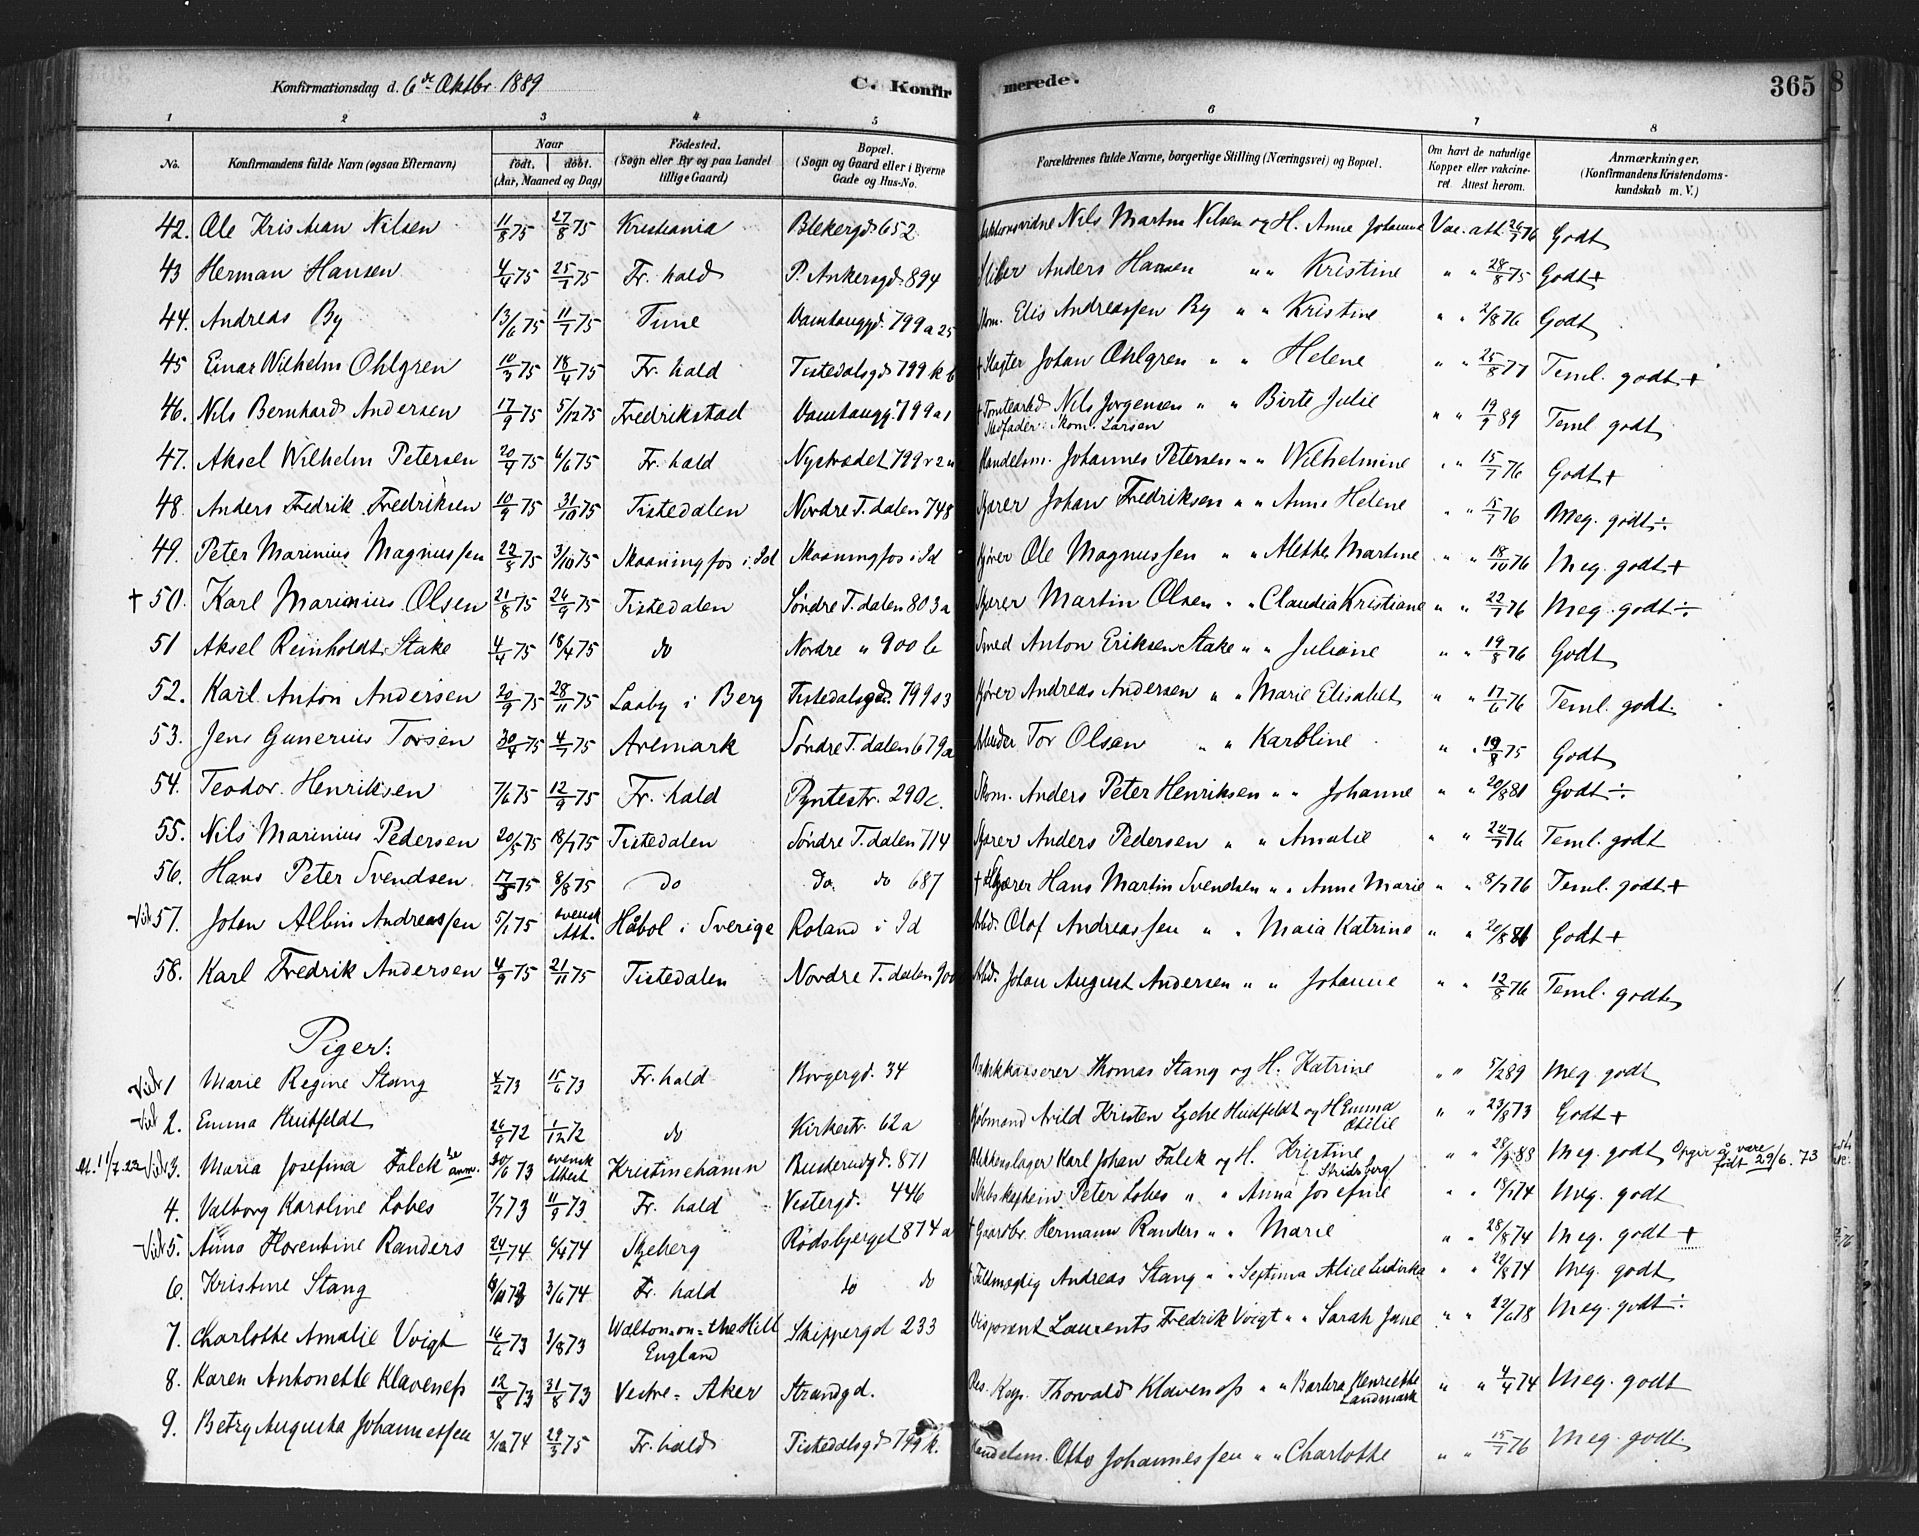 Konfirmationsdag d. 6te Oktbr 1889 C. Konfirmerede. 365
1 2 3 4 5 6 7 8
No. Konfirmandens fulde Navn (ogsaa Efternavn) Naar født, døbt. (Aar, Maaned og Dag) Fødested. (Sogn eller By og paa Landet tillige Gaard) Bopæl. (Sogn og Gaard eller i Byerne Gade og Hus-No. Forældrenes fulde Navne, borgerlige Stilling (Næringsvei) og Bopæl. Om havt de naturlige Kopper eller vakcineret. Attest herom. Anmærkninger. (Konfirmandens Kristendomskundskab m. V.)
42. Ole Kristian Nilsen 11/8 75 27/8 75 Kristiania Blekergd 652 Nils Martin Nilsen og H. Anne Johanne Vac. att. 26/7 76 Godt
43 Herman Hansen 4/4 75 25/7 75 Fr. hald P. Ankersgd. 894 Anders Hansen " " Kristine " " 28/8 75 Godt +
44. Andreas By 13/6 75 11/7 75 Tune 799 a 25 Skom. Elis Andreassen By " " Kristine " " 2/8 76 Godt
45 Einar Wilhelm Ohlgren 10/3 75 18/4 75 Fr. hald Tistedalsgd 799 k 6 + Slagter Johan Ohlgren " " Helene " " 25/8 77 Teml. godt +
46. Nils Bernhard Andersen 17/9 75 5/12 75 Fredrikstad 799 a 1 + Tomtearbd Nils Jørgensen " " Birte Julie " " 19/9 89 Teml godt
Stedfader: Skom. Larsen
47. Aksel Wilhelm Petersen 20/4 75 6/6 75 Fr. hald Nystrædet 799 r 2 Handelsm. Johannes Petersen " " Wilhelmine " " 15/7 76 Godt +
48. Anders Fredrik Fredriksen 10/9 75 31/10 75 Tistedalen Nordre T. dalen 748 Johan Fredriksen " " Anne Helene " " 15/7 76 Meg. godt ÷
49. Peter Marinius Magnussen 22/8 75 3/10 75 Skaaningfos i Id Skaaningfos i Id Kjører Ole Magnussen " " Alette Martine " " 18/10 76 Meg. godt +
+ 50. Karl Marinius Olsen 21/8 75 26/9 75 Tistedalen Søndre T. dalen 803 a Martin Olsen " " Claudia Kristiane " " 22/7 76 Meg. godt ÷
51 Aksel Reinholdt Stake 4/4 75 18/4 75 do Nordre " 900 b Smed Anton Eriksen Stake " " Juliane " " 19/8 76 Godt
52. Karl Anton Andersen 20/9 75 28/11 75 Laaby i Berg Tistedalsgd. 799 a 3 Kjører Andreas Andersen " " Marie Elisabet " " 17/6 76 Teml. godt.
53. Jens Gunerius Torsen 30/4 75 4/7 75 Aremark Søndre T. dalen 679 a Tor Olsen " " Karoline " " 19/8 75 Godt
54. Teodor Henriksen 7/6 75 12/9 75 Fr. hald Pyntestr. 290 c. Skom. Anders Peter Henriksen " " Johanne " " 20/8 81 Godt ÷
55. Nils Marinius Pedersen 20/5 75 18/7 75 Tistedalen Søndre T. dalen 714 Anders Pedersen " " Amalie " " 22/7 76 Teml. godt
56. Hans Peter Svendsen 17/3 75 8/8 75 do do. do 687 + Hans Martin Svendsen " " Anne Marie " " 8/7 76 Teml. godt +
Vid. 57. Johan Albin Andreassen 5/1 75 svensk Att. Håbol i Sverige Roland i Id Arbd. Olof Andreassen " " Maia Katrine " " 20/8 86 Godt +
58. Karl Fredrik Andersen 4/9 75 21/11 75 Tistedalen Nordre T. dalen 900 Arbd. Johan August Andersen " " Johanne " " 12/8 76 Teml. godt
Piger:
Vid. 1 Marie Regine Stang 4/2 73 15/6 73 Fr. hald Borgergd. 34 Thomas Stang og H. Katrine " " 5/2 89 Meg. godt
Vid. 2. Emma Huitfeldt 26/9 72 1/12 72 do Kirkestr. 62 a Kjøbmand Arild Kristen Lyche Huitfeldt og H Emma Otilie " " 23/8 73 Godt +
at. 11/7.22 Vid. 3. Maria Josefina Falck se anm. 30/6 73 svensk Attest Kristinehamn 871 Blikkenslager Karl Johan Falck og H. Kristine f. Skidsberg " " 28/9 88 Meg. godt Opgir å være født 29/6. 73
4. Valborg Karoline Lobes 7/7 73 11/9 73 Fr. hald Vestergd. 446 Skibskaptein Peter Lobes " " Anna Josefine " " 18/7 74 Meg. godt
Vid. 5. Anna Florentine Randers 24/1 74 6/4 74 Skjeberg Rødsbjerget 874 a + Gaardbr. Hermann Randers " " Marie " " 28/8 74 Meg. godt +
6. Kristine Stang 3/6 74 Fr. hald do do Andreas Stang " " Septima Alice Ludvika " " 22/8 74 Meg. godt
7. Charlotte Amalie Voigt 16/6 73 3/8 73 Walton-on-the Hill England Skippergd 233 Laurents Fredrik Voigt " " Sarah Jane " " 22/6 78 Meg. godt ÷
8. Karen Antonette Klaveness 12/8 73 31/8 73 Vestre-Aker Strandgd. Res. Kap. Thorvald Klaveness " " Barbra Henriette Landmark " " 4/4 74 Meg. godt
9. Betzy Augusta Johannessen 2/12 74 29/3 75 Fr. hald Tistedalsgd 799 k. Handelsm. Otto Johannessen " " Charlotte " " 15/7 76 Meg. godt